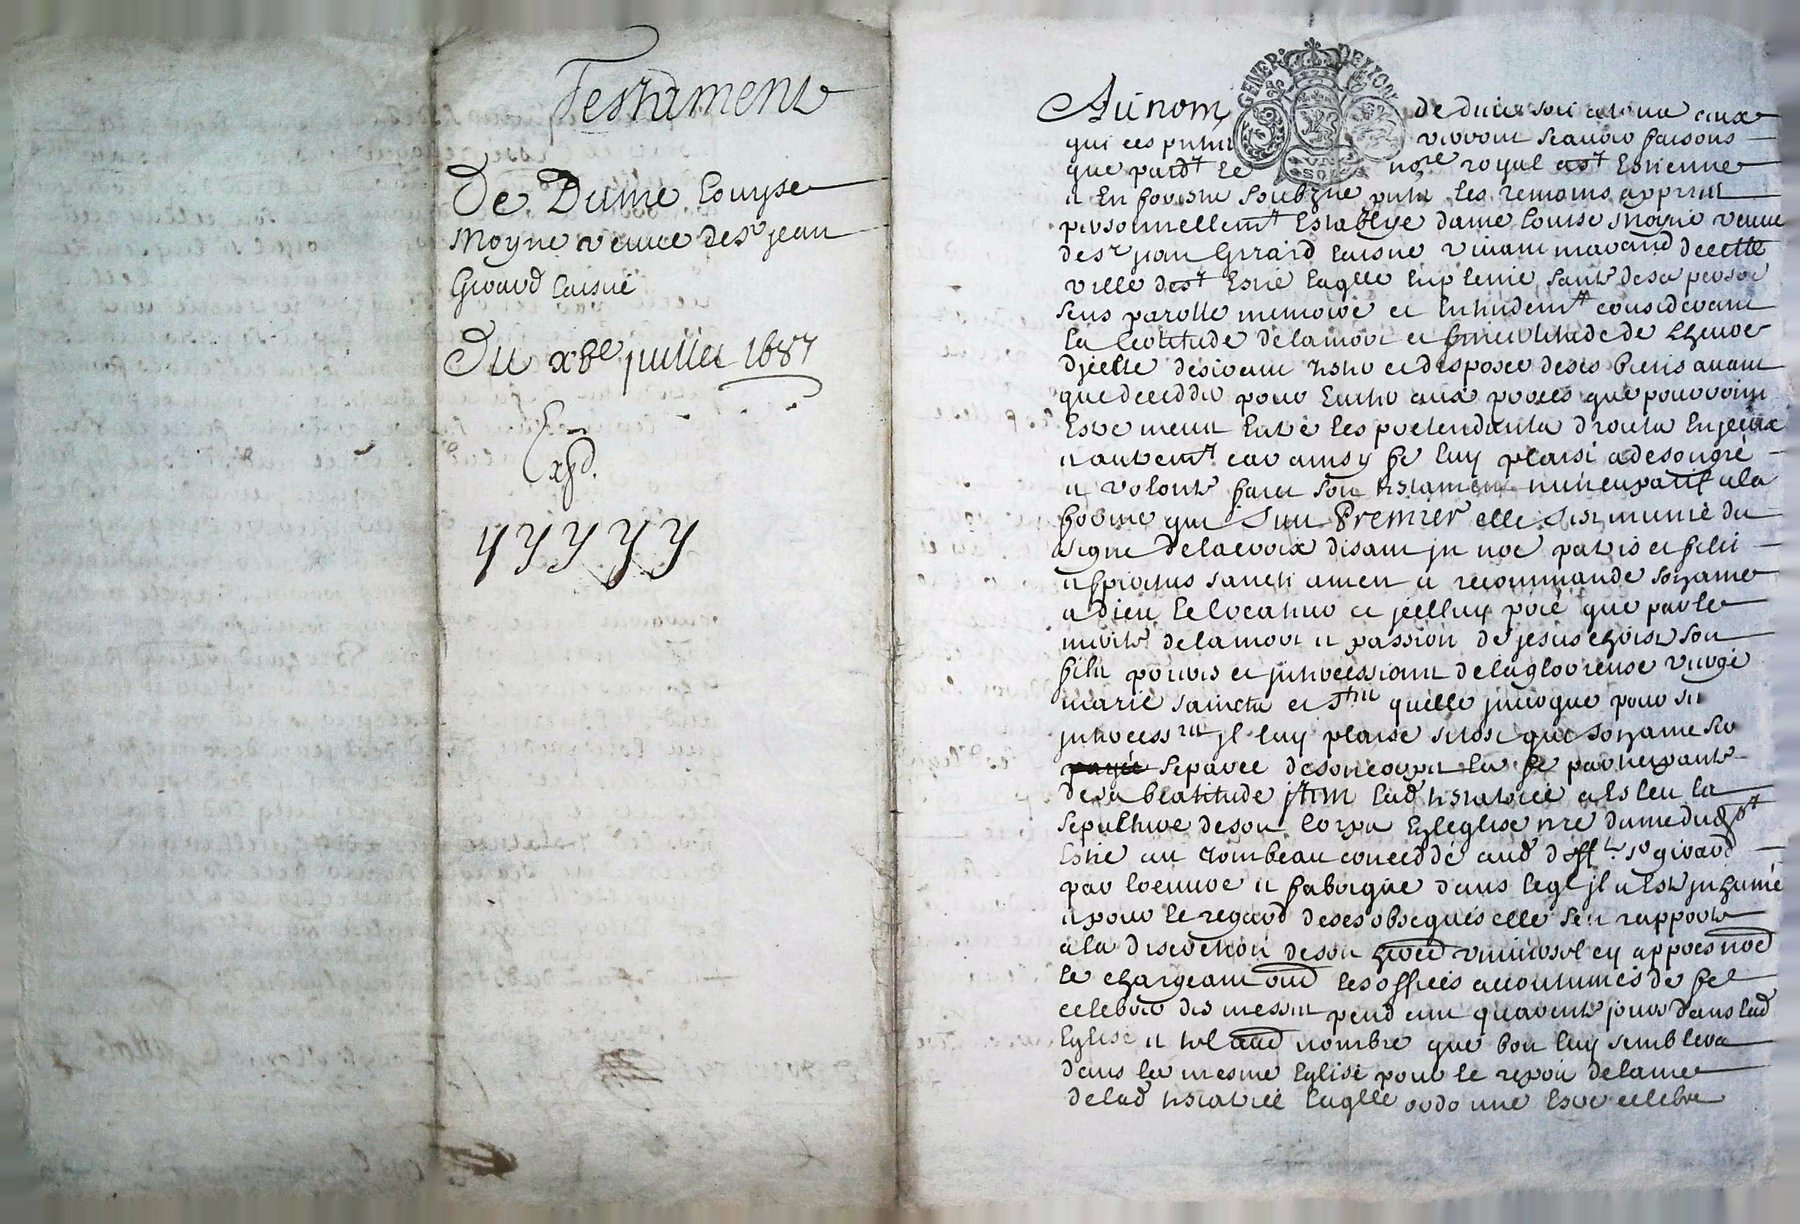 Testament
De Dame Louyse
Moyne veuve de sr jean
Girard laisné
Du xbe juillet 1687
Exp.
GENER DE LYON
UN SOL
Au nom de Dieu soit a tous ceux
qui ces verront scavoir faisons
que pardt le nore royal a st Estienne
en forestz soubzne les temoins
personnellemt Establye dame Louise Moyne veuve
de sr jean Girard laisné vivant marchand de cette
ville de st Estne laqlle en plenie santé de sa person
sens parolle memoire et entendemt considerant
la certitude de la mort et lincertitude de Lheure
dicelle desirant tester et disposer de ses biens avant
que decedder pour Eviter aux proces que pourroint
Estre meus entre les pretendants droits en jceux
autremt. car ainsy luy plaist a de son gré
et volonté faict son testament nuncupatif a la
forme qui suit Premier elle sest munie du
signe de la croix disant jn noe patris et filii
et spiritus sancti amen a recommandé son ame
a Dieu le Createur et jcelluy prié que par le
merite de la mort et passion de jesus christ son
fils prieres et jntercessions de la glorieuse vierge
marie saincts et stes quelle jnvoque pour
jntercessrs jl luy plaise sitost que son ame sera
separee de son corps la fe participante
de sa beatitude jtem lad testatrice a esleu la
sepulture de son corps En leglise nre dame dud st
Estne au tombeau conceddé aud defft sr girard
par loeuvre et fabrique dans leql jl a Esté jnhumé
et pour le regard de ses obseques elle sen rapporte
a la discretion de son hered universel cy apres noé
le chargeant oud les offices accoutumés de fe
celebrer des messes pendant quarente jours dans lad
Eglise et tel aud nombre que bon luy semblera
dans la mesme Eglise pour le repos de lame
de lad testatrice laqlle ordonne Estre celebré